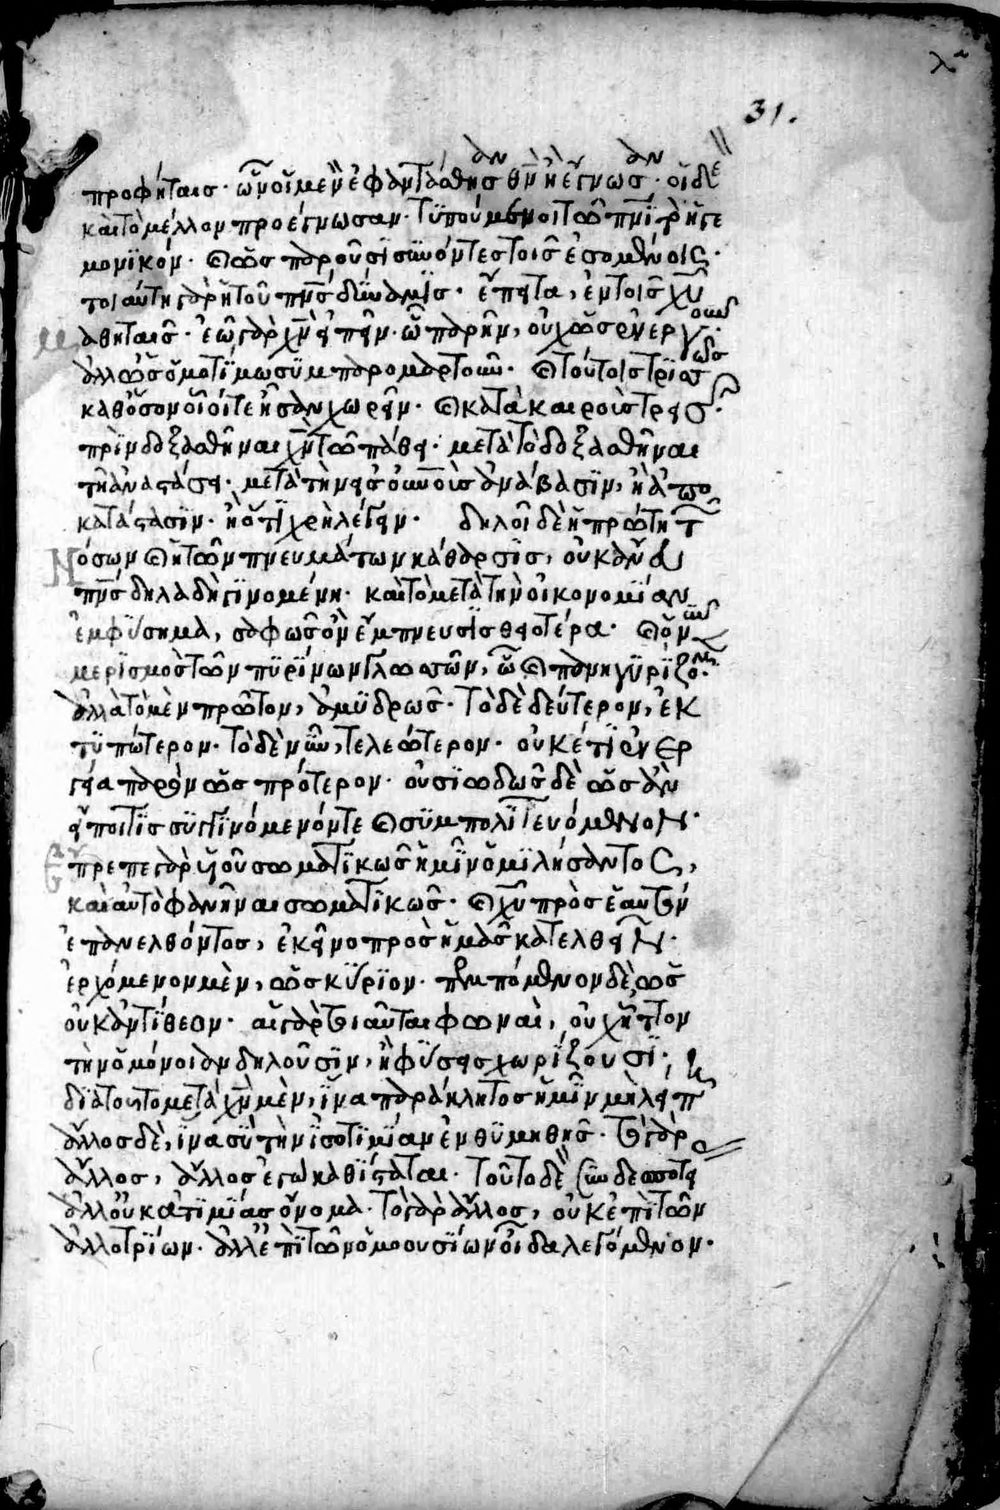 λα
31.
προφήταις· ὧν οἱ μὲν ἐφαντάσθησαν θν ἢ ἔγνωσαν· οἱ δὲ
καὶ τὸ μέλλον προέγνωσαν· τυπούμενοι τῶ πνι τὸ ἡγε
μονικόν· καὶ ὡς παροῦσι συνόντες τοῖς ἐσομένοις·
τοιαύτη γὰρ ἡ τοῦ πνς δύναμις· ἔπειτα, ἐν τοῖς χυ
μαθηταῖς· ἐῶ γὰρ χν εἰπεῖν· ὧ παρῆν, οὐχ ὡς ἐνεργοῦν·
ἀλλ ὡς ὁμοτίμω συμπαρομαρτοῦν· καὶ τούτοις τρισσῶς
καθόσον οἷοί τε ἦσαν χωρεῖν· καὶ κατὰ καιροὺς τρεῖς·
πρὶν δοξασθῆναι χν τῶ πάθει· μετὰ τὸ δοξασθῆναι
τῆ ἀναστάσει· μετὰ τὴν εἰς οὐνοὺς ἀνάβασιν, ἢ ἀπο
κατάστασιν· ἢ ὅτι χρὴ λέγειν· δηλοῖ δὲ ἡ πρώτη τῶν
νόσων καὶ ἡ τῶν πνευμάτων κάθαρσις, οὐκ ἄνευ
πνς δηλαδὴ γινομένη· καὶ τὸ μετὰ τὴν οἰκονομίαν
ἐμφύσημα, σαφῶς ὂν ἔμπνευσις θειοτέρα· καὶ ὁ νῦν
μερισμὸς τῶν πυρίνων γλωσσῶν, ὃ καὶ πανηγυρίζομεν·
ἀλλὰ τὸ μὲν πρῶτον, ἀμυδρῶς· τὸ δὲ δεύτερον, ἐκ
τυπώτερον· τὸ δὲ νῦν, τελεώτερον· οὐκέτι ἐνερ
γεία παρὸν ὡς πρότερον· οὐσιωδῶς δὲ ὡς ἂν
εἴποι τις συγγινόμενόν τε καὶ συμπολιτευόμενον·
ἔπρεπε γὰρ υἱοῦ σωματικῶς ἡμῖν ὁμιλήσαντος,
καὶ αὐτὸ φανῆναι σωματικῶς· καὶ χυ πρὸς ἑαυτὸν
ἐπανελθόντος, ἐκεῖνο πρὸς ἡμᾶς κατελθεῖν·
ἐρχόμενον μὲν, ὡς κύριον· πεμπόμενον δὲ, ὡς
οὐκ ἀντίθεον· αἱ γὰρ τοιαῦται φωναὶ, οὐχ ἧττον
τὴν ὁμόνοιαν δηλοῦσιν, ἢ φύσεις χωρίζουσι;
διὰ τοῦτο μετὰ χν μὲν, ἵνα παράκλητος ἡμῖν μὴ λείπη
ἄλλος δὲ, ἵνα σὺ τὴν ἰσοτιμίαν ἐνθυμηθῆς· τὸ γὰρ
ἄλλος, ἄλλος ἐγὼ καθίσταται· τοῦτο δὲ συνδεσποτεί
ἀλλ οὐκ ἀτιμίας ὄνομα· τὸ γὰρ ἄλλος, οὐκ ἐπὶ τῶν
ἀλλοτρίων· ἀλλ ἐπὶ τῶν ὁμοουσίων οἶδα λεγόμενον·